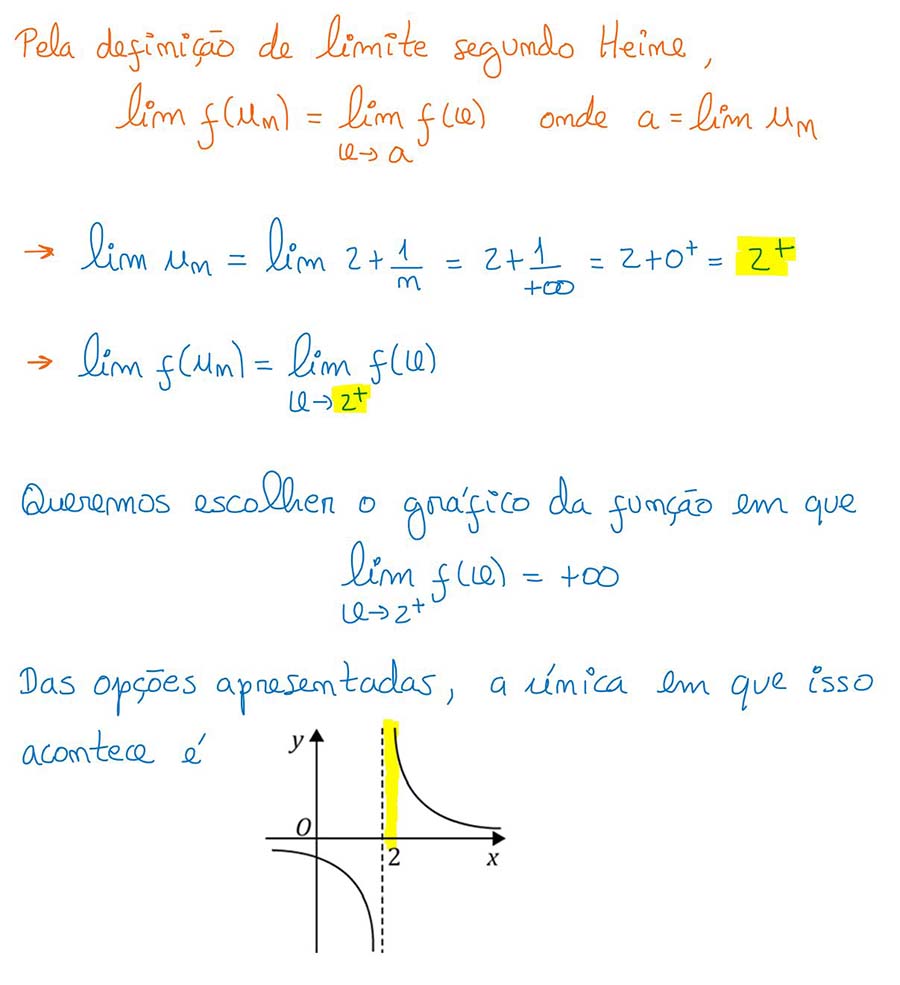 Pela definição de limite segundo Heine,
lim f(uₙ) = lim f(x) onde a = lim uₙ
x→a
→ lim uₙ = lim 2 + 1/n = 2 + 1/+∞ = 2 + 0⁺ = 2⁺
→ lim f(uₙ) = lim f(x)
x→2⁺
Queremos escolher o gráfico da função em que
lim f(x) = +∞
x→2⁺
Das opções apresentadas, a única em que isso
acontece é
y
O
2
x